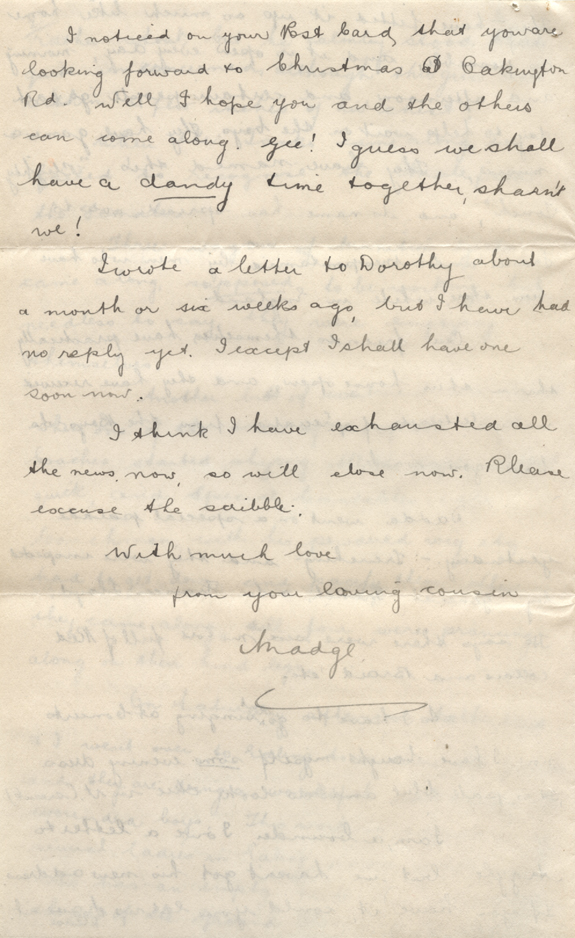 I noticed on your Post Card, that you are
looking forward to Christmas @ Oakington
Rd. Well I hope you and the others
can come along, gee! I guess we shall
have a dandy time together, sharn't
we!
I wrote a letter to Dorothy about
a month or six weeks ago, but I have had
no reply yet. I except I shall have one
soon now.
I think I have exhausted all
the news, now, so will close now. Please
excuse the scribble.
With much love
from your loving cousin
Madge